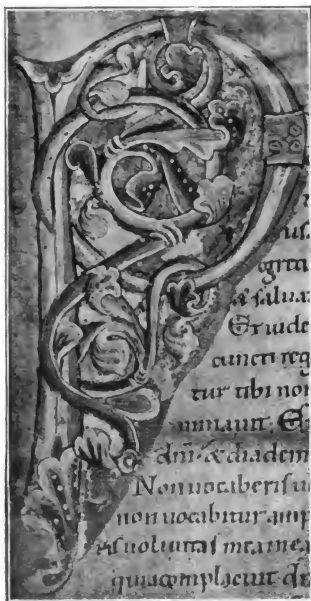 us.
& salua
Et uide
cuncti reg
tur tibi nom
minauit. Et
dñi. & diadem
Non uocaberis u
non uocabitur amp
ris uoluntas mea in ea
quia complacuit